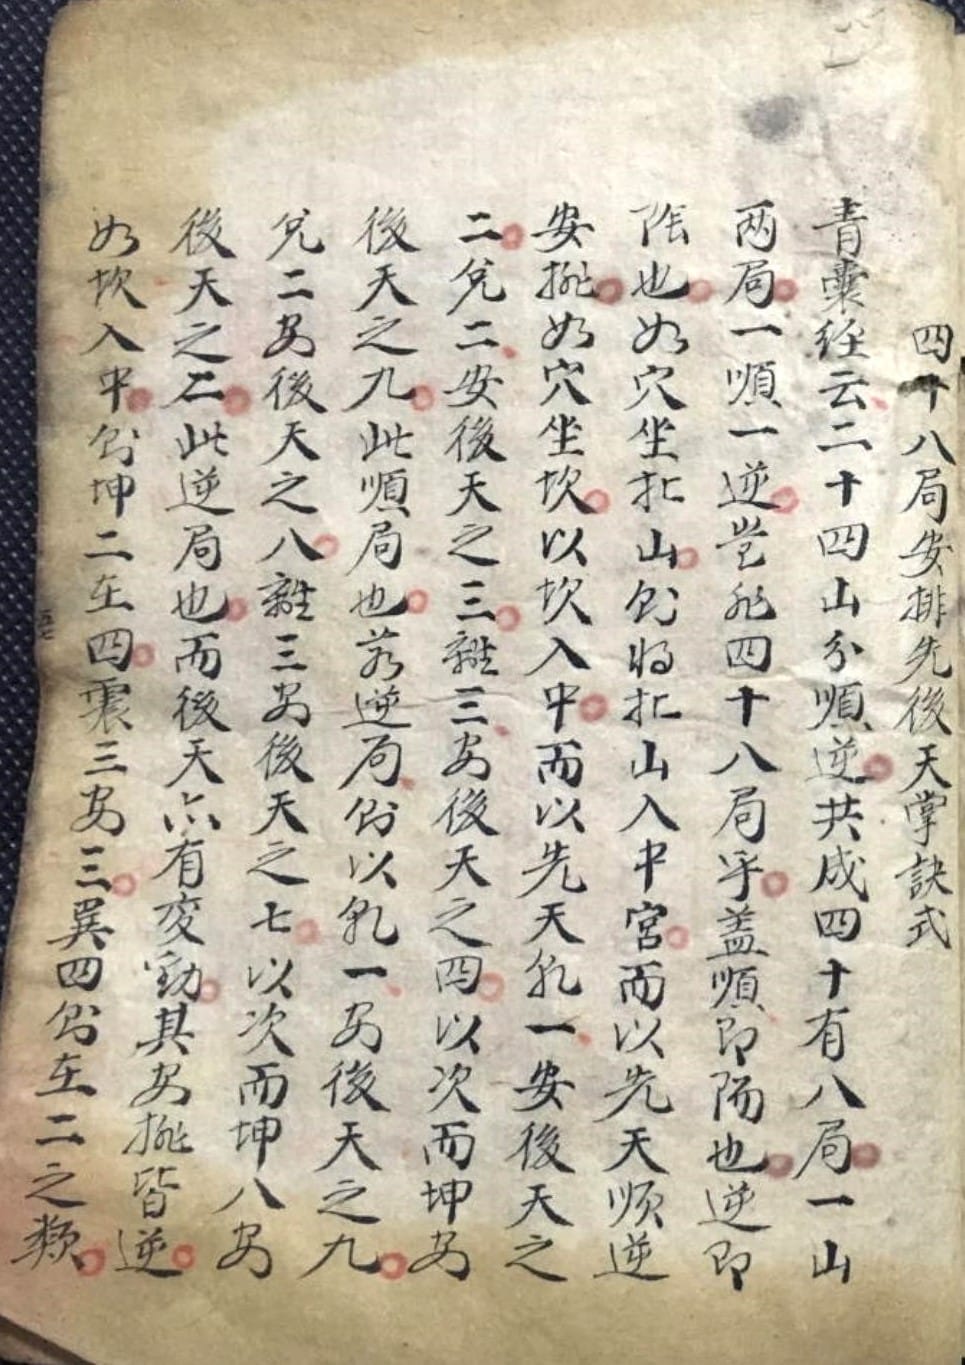 四十八局安排先後天掌訣式
青囊经云二十四山分順逆共成四十有八局一山
两局一順一逆岂非四十八局乎盖順即陽也逆即
陰也如穴坐北山則将北山入中宮而以先天順逆
安排如穴坐坎以坎入中而以先天乹一安後天之
二兌二安後天之三離三安後天之四以次而坤安
後天之九此順局也若逆局則以乹一安後天之九
兌二安後天之八離三安後天之七以次而坤八安
後天之二此逆局也而後天亦有変動其安排皆逆
如坎入中則坤二在四震三安三巽四則在二之類